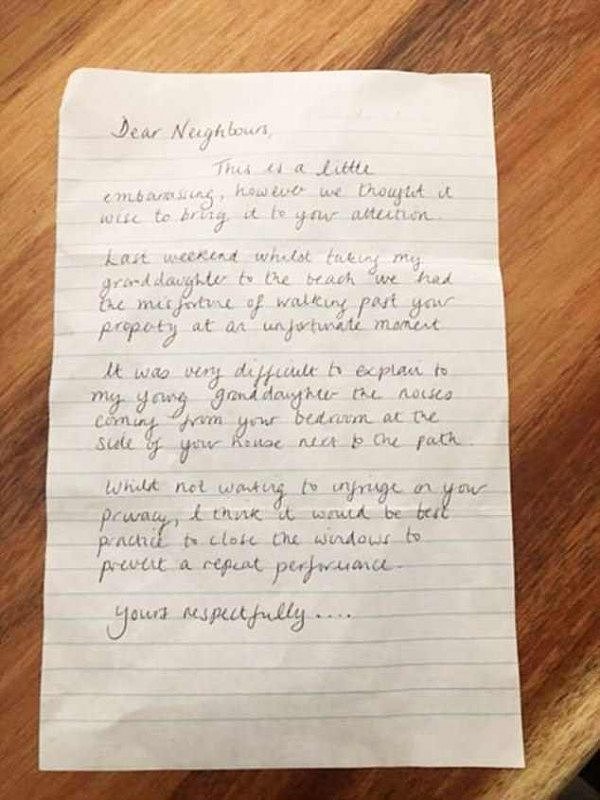 Dear Neighbours,
This is a little
embarrassing, however we thought it
wise to bring it to your attention.
Last weekend whilst taking my
granddaughter to the beach we had
the misfortune of walking past your
property at an unfortunate moment
It was very difficult to explain to
my young granddaughter the noises
coming from your bedroom at the
side of your house next to the path.
Whilst not wanting to infringe on your
privacy, I think it would be best
practice to close the windows to
prevent a repeat performance.
Yours respectfully ....